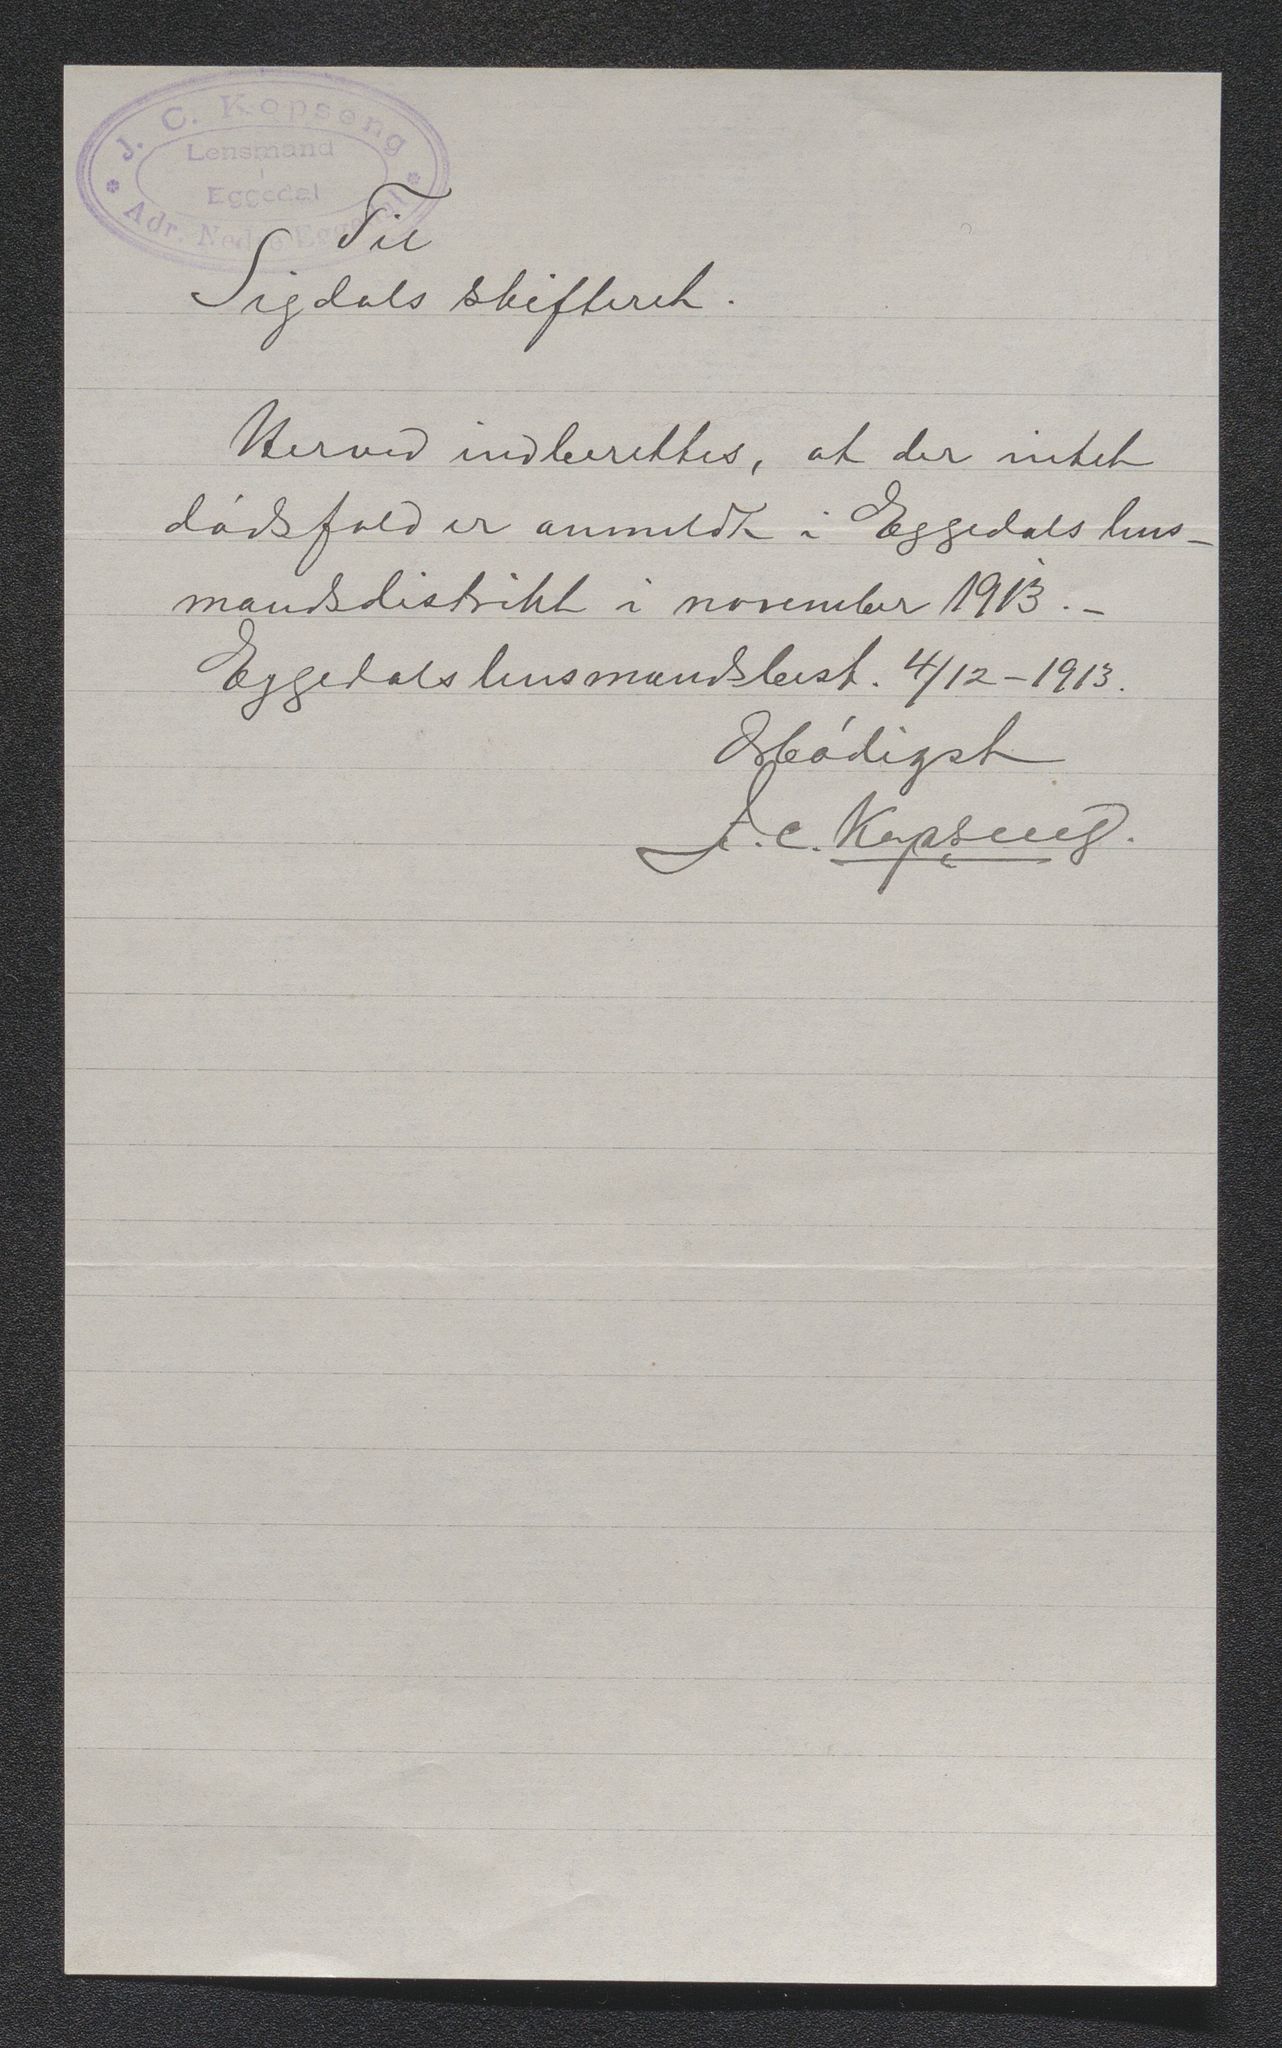 J. C. Kopseng
Lensmand
i
Eggedal
Adr. Nedre Eggedal
Til
Sigdals skifteret.
Herved indberettes, at der intet
dódsfald er anmeldt i Eggedals lens-
mandsdistrikt i november 1913. -
Eggedals lensmandsbest. 4/12-1913.
Ærbódigst
J. C. Kopseng.